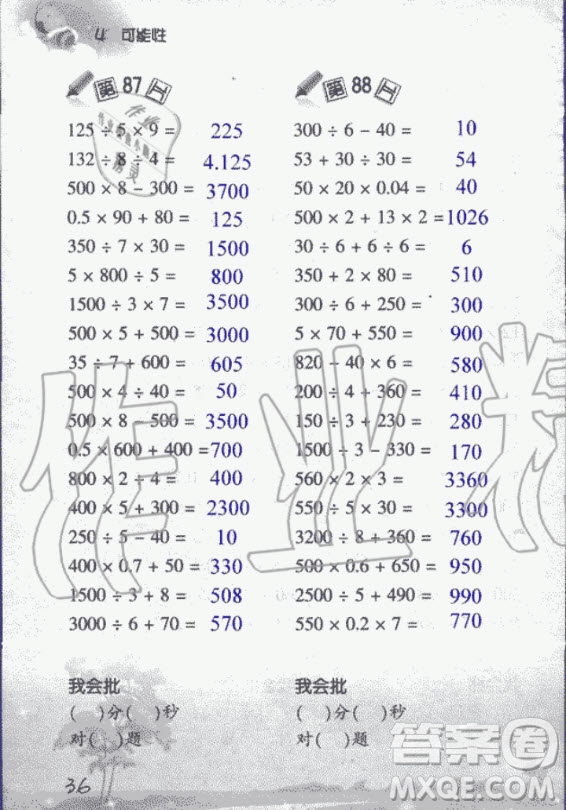 4 可能性
第87天
125 ÷ 5 × 9 = 225
132 ÷ 8 ÷ 4 = 4.125
500 × 8 − 300 = 3700
0.5 × 90 + 80 = 125
350 ÷ 7 × 30 = 1500
5 × 800 ÷ 5 = 800
1500 ÷ 3 × 7 = 3500
500 × 5 + 500 = 3000
35 ÷ 7 + 600 = 605
500 × 4 ÷ 40 = 50
500 × 8 − 500 = 3500
0.5 × 600 + 400 = 700
800 × 2 ÷ 4 = 400
400 × 5 + 300 = 2300
250 ÷ 5 − 40 = 10
400 × 0.7 + 50 = 330
1500 ÷ 3 + 8 = 508
3000 ÷ 6 + 70 = 570
我会批
( )分( )秒
对( )题
第88天
300 ÷ 6 − 40 = 10
53 + 30 ÷ 30 = 54
50 × 20 × 0.04 = 40
500 × 2 + 13 × 2 = 1026
30 ÷ 6 + 6 ÷ 6 = 6
350 + 2 × 80 = 510
300 ÷ 6 + 250 = 300
5 × 70 + 550 = 900
820 − 40 × 6 = 580
200 ÷ 4 + 360 = 410
150 ÷ 3 + 230 = 280
1500 ÷ 3 − 330 = 170
560 × 2 × 3 = 3360
550 ÷ 5 × 30 = 3300
3200 ÷ 8 + 360 = 760
500 × 0.6 + 650 = 950
2500 ÷ 5 + 490 = 990
550 × 0.2 × 7 = 770
我会批
( )分( )秒
对( )题
36
作业精
答案圈
MXQE.COM